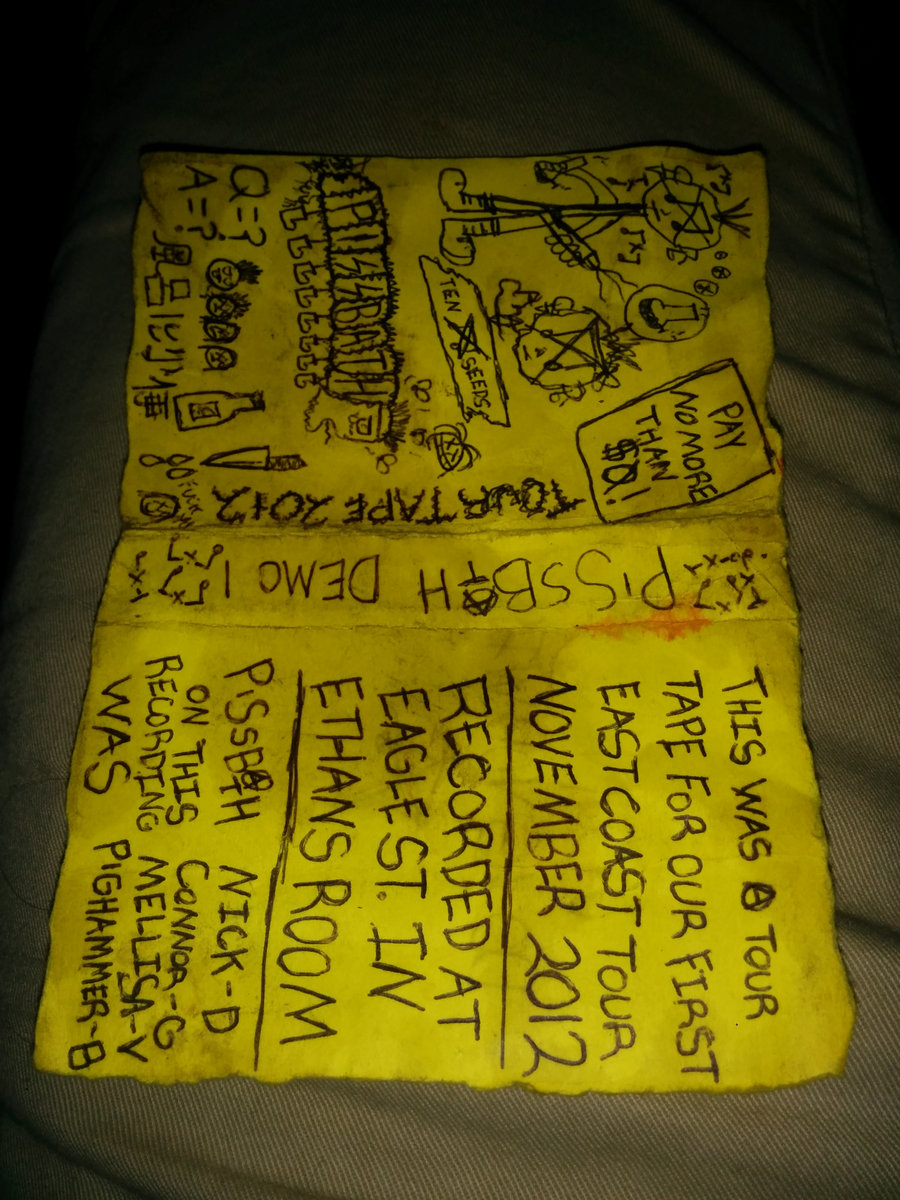 PAY
NO MORE
THAN
$0!
TEN SEEDS
PISSBATH
Q=?
A=?
TOUR TAPE 2012
PISSBATH DEMO 1
THIS WAS A TOUR
TAPE FOR OUR FIRST
EAST COAST TOUR
NOVEMBER 2012
RECORDED AT
EAGLE ST. IN
ETHANS ROOM
PISSBATH
ON THIS
RECORDING
WAS
NICK-D
CONNOR-G
MELLISA-V
PIGHAMMER-B